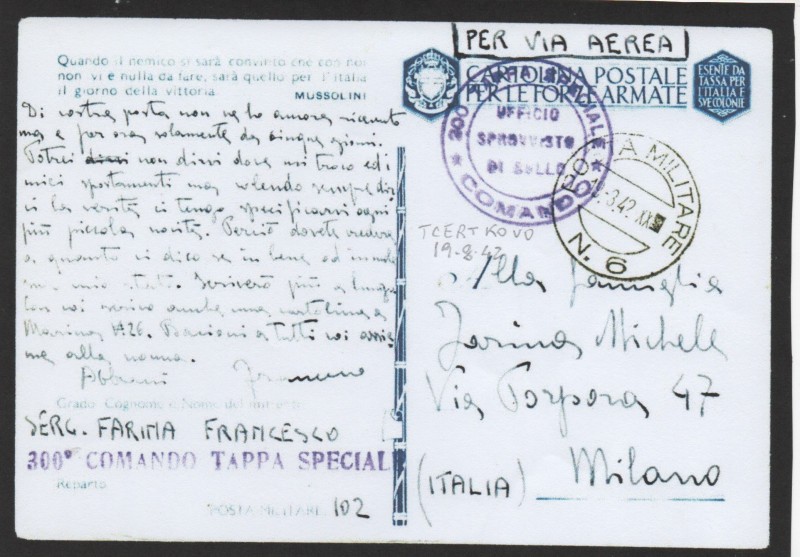 PER VIA AEREA
Quando il nemico si sarà convinto che con noi
non vi è nulla da fare, sarà quello per l'Italia
il giorno della vittoria.
MUSSOLINI
CARTOLINA POSTALE
PER LE FORZE ARMATE
ESENTE DA
TASSA PER
L'ITALIA E
SVE COLONIE
300° TAPPA SPECIALE
UFFICIO
SPROVVISTO
DI BOLLO
★ COMANDO ★
POSTA MILITARE
8.42.XX
N. 6
TCERTKOVO
19-8-42
Di vostra posta non ne ho ancora ricevuto
ma è per ora solamente da cinque giorni.
Potrei non dirvi dove mi trovo ed i
miei spostamenti ma volendo sempre dir
ci la verità ci tengo specificarvi ogni
più piccola novità. Perciò dovete credere
a quanto vi dico se in bene od in male
mio stato. Scriverò più a lungo
Con voi scrivo anche una cartolina a
Marina #26. Bacioni a tutti voi assie
me alla nonna.
Abbracci Francesco
Alla famiglia
Farina Michele
Via Porpora 47
(ITALIA) Milano
Grado Cognome e Nome del mittente
SERG. FARINA FRANCESCO
300° COMANDO TAPPA SPECIALE
Reparto
POSTA MILITARE 102